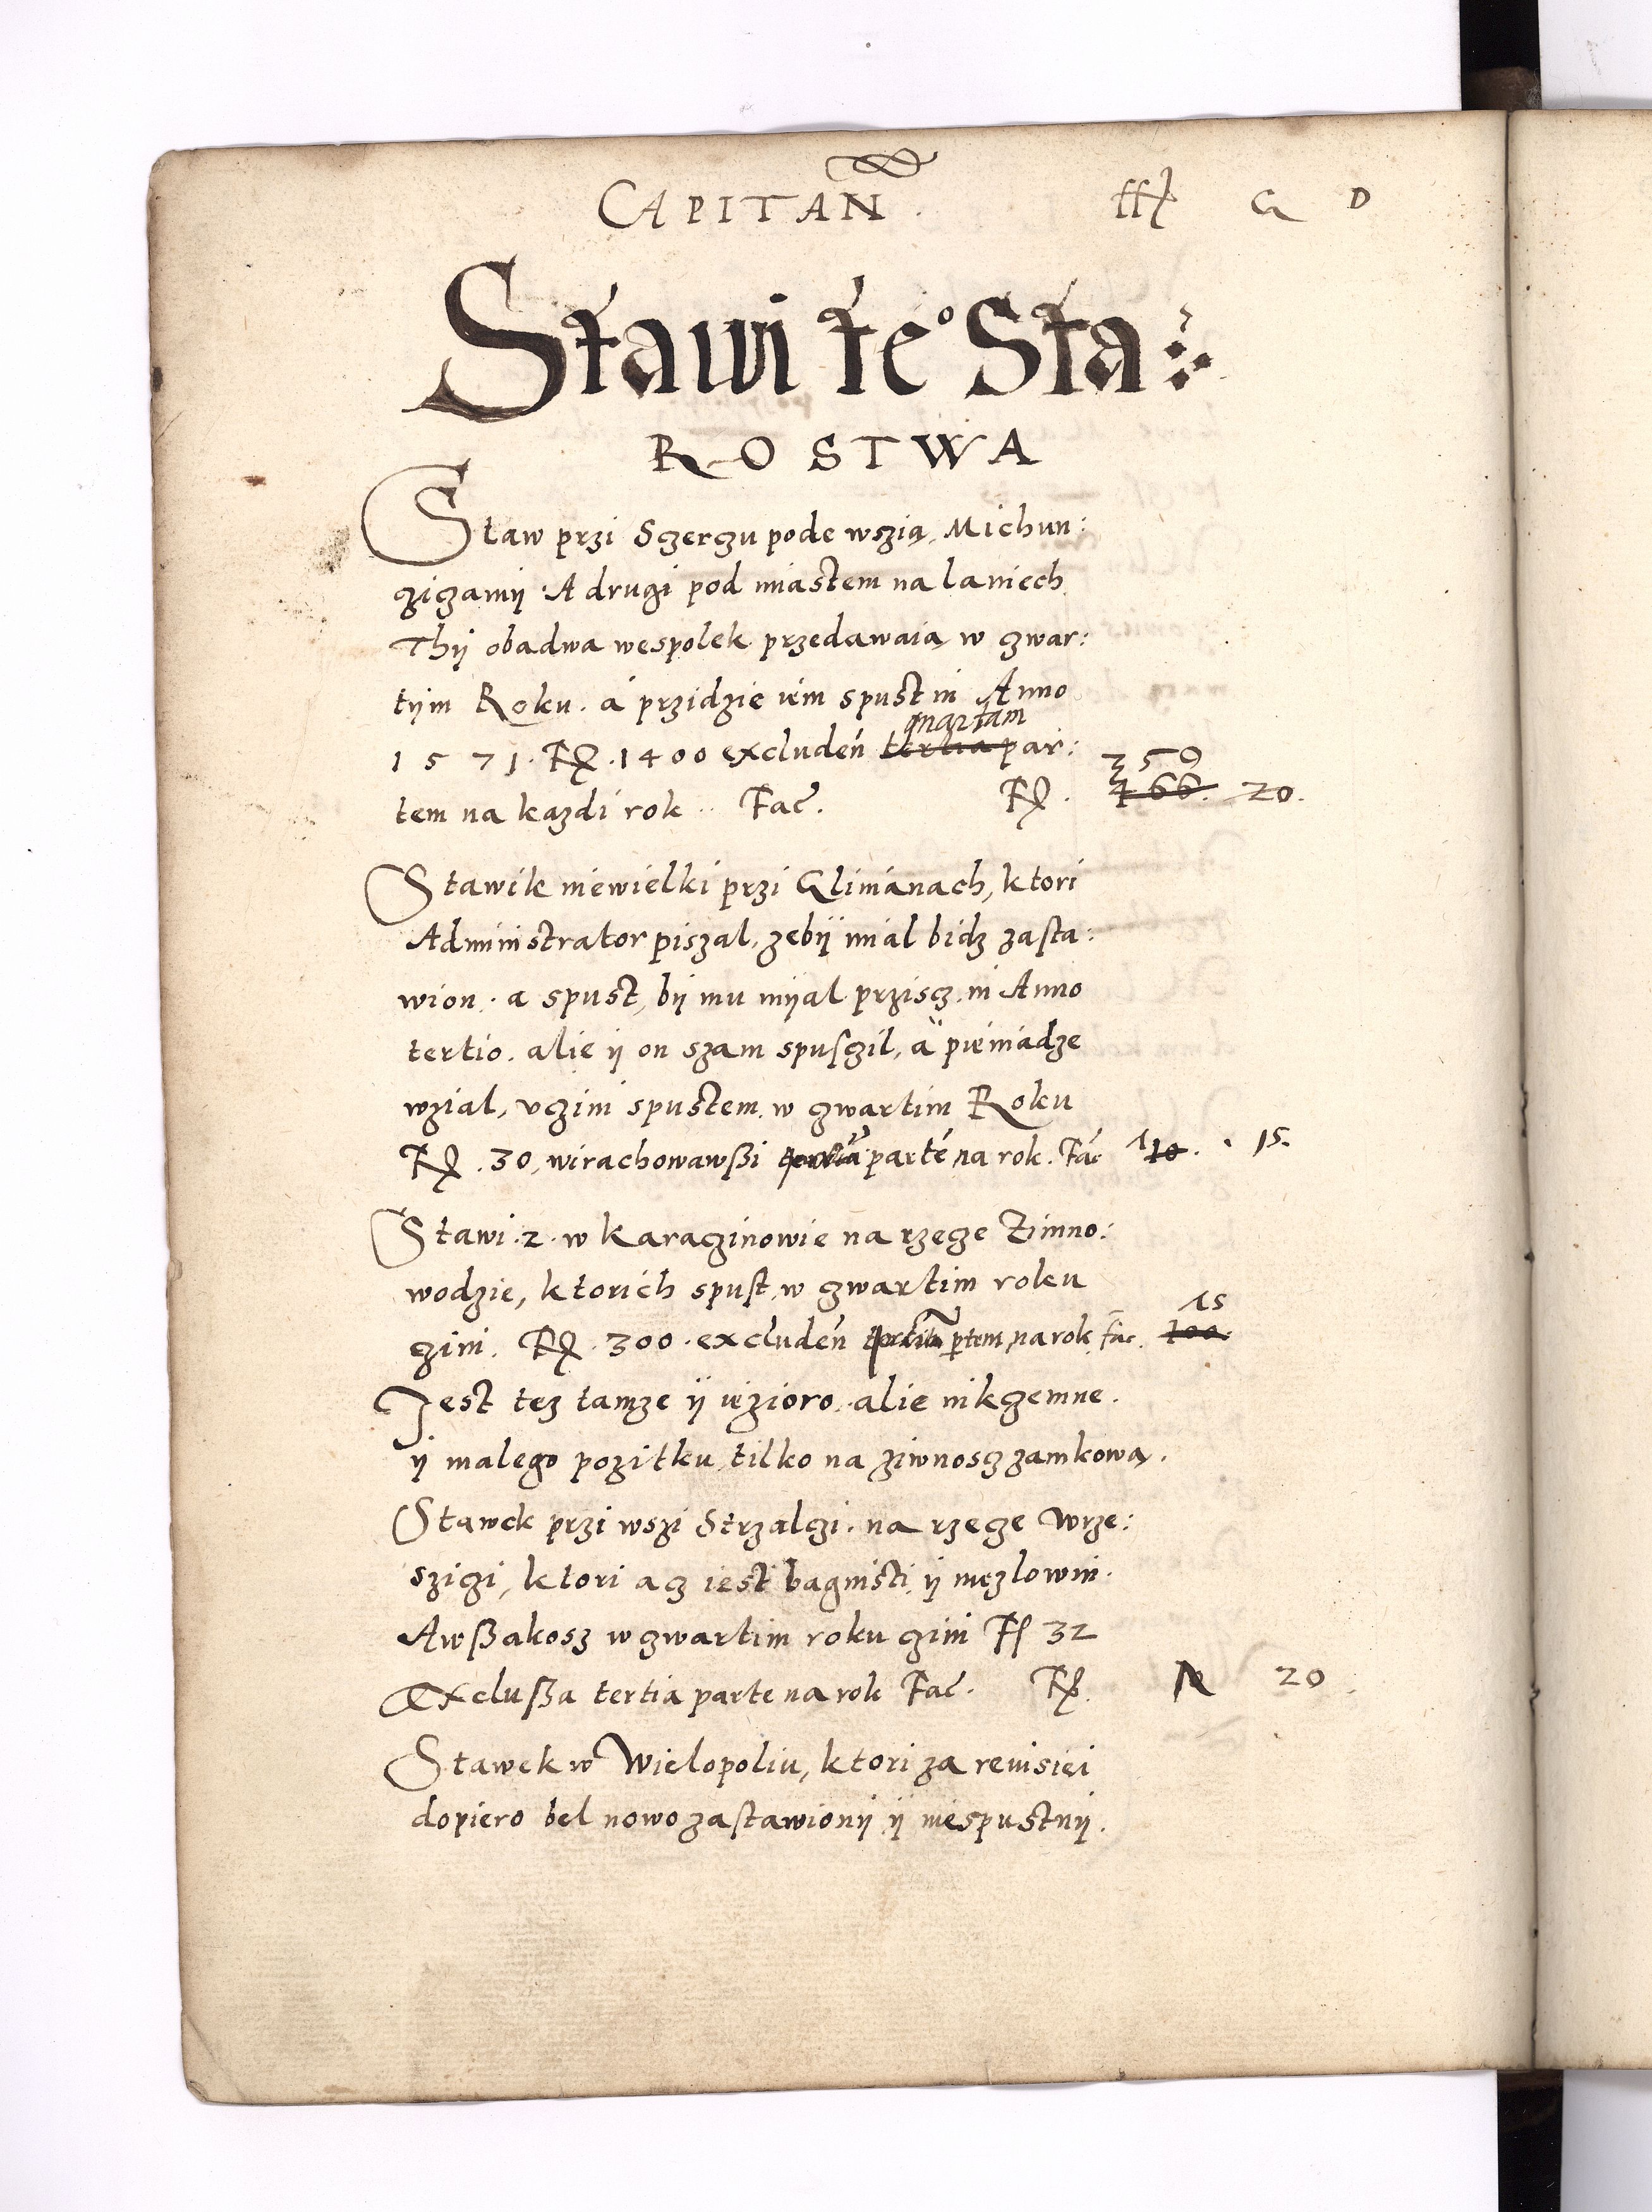 CAPITAN̄ . ffl G D
Stawi te° Sta:
ROSTWA
Staw przi Sczerczu pode wszią, Michun:
cziczamÿ. A drugi pod miastem na laniech
Thÿ obadwa wespolek przedawaią w czwar:
tÿm Roku. á przidzie iém spust in Anno
1571. Fl. 1400 excludeń tertia quartam par:
tem na kazdi rok. Fac̃. Fl. 466. 350 20.
Stawik niewielki przi Glinianach, ktori
Administrator piszal, zebÿ mial bidz zasta:
wion. a spust, bÿ mu mÿal przisz. in Anno
tertio. alie ÿ on szam spusczil, ä pieniadze
wzial, vczini spustem. w czwartim Roku
Fl. 30, wirachowawßi parté na rok. Fac 10. 15.
Stawi. 2. w Karaczinowie na rzecze Zimno:
wodzie, ktorich spust w czwartim roku
czini. Fl. 300. excludeń ptem, na rok fac. 100 15
Jest tez tamze ÿ iezioro. alie nikczemne.
ÿ malego pozitku tilko na ziwnoscz zamkową.
Stawek przi wszi Strzalczi. na rzecze Wrze:
szici, ktori acz iest bagnisti ÿ niezlowni.
Awßakosz w czwartim roku czini Fl 32
Exclußa tertia parte na rok Fac̃. Fl. 20
Stawek w Wielopoliu, ktori za reuisiei
dopiero bel nowo zastawionÿ ÿ niespustnÿ.